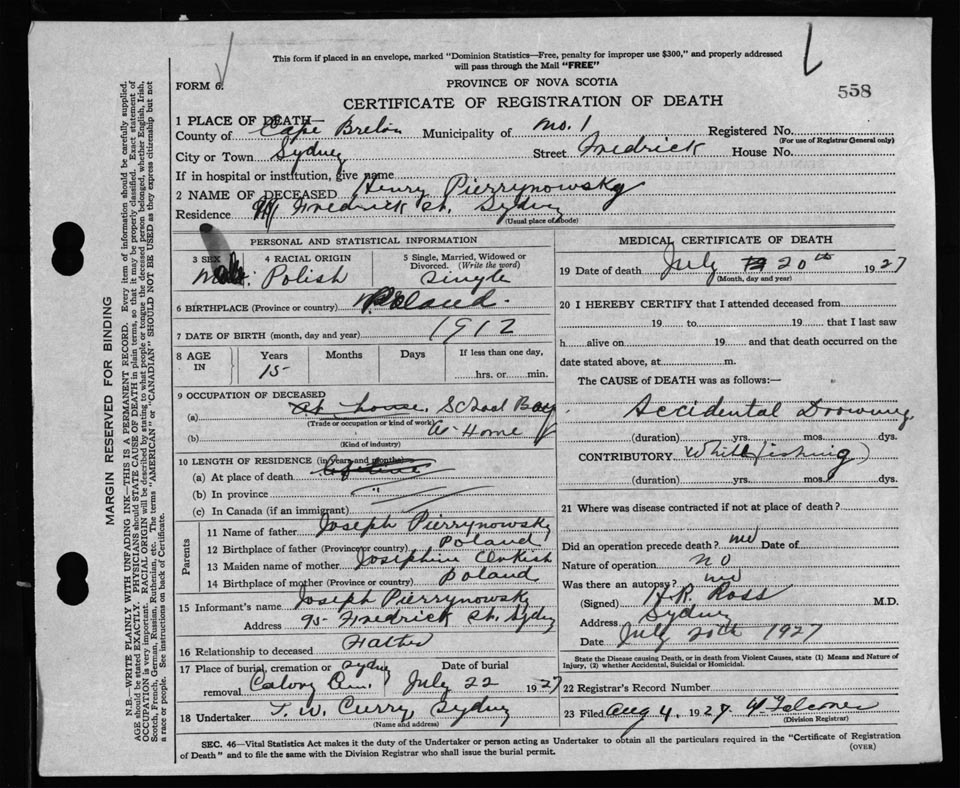 This form if placed in an envelope, marked "Dominion Statistics—Free, penalty for improper use $300," and properly addressed
will pass through the Mail "FREE"
FORM 6.
PROVINCE OF NOVA SCOTIA
558
CERTIFICATE OF REGISTRATION OF DEATH
1 PLACE OF DEATH—
County of Cape Breton Municipality of No. 1 Registered No.
(For use of Registrar General only)
City or Town Sydney Street Fredrick House No.
If in hospital or institution, give name
2 NAME OF DECEASED Henry Pierrynowsky
Residence Fredrick St. Sydney
(Usual place of abode)
PERSONAL AND STATISTICAL INFORMATION
3 SEX 4 RACIAL ORIGIN 5 Single, Married, Widowed or
Divorced. (Write the word)
Male Polish Single
6 BIRTHPLACE (Province or country) Poland.
7 DATE OF BIRTH (month, day and year) 1912
8 AGE IN Years Months Days If less than one day,
15 hrs. or min.
9 OCCUPATION OF DECEASED
(a) At house. School Boy
(Trade or occupation or kind of work) at Home
(b)
(Kind of industry)
10 LENGTH OF RESIDENCE (in years and months)
(a) At place of death lifetime
(b) In province "
(c) In Canada (if an immigrant)
Parents
11 Name of father Joseph Pierrynowsky
12 Birthplace of father (Province or country) Poland
13 Maiden name of mother Josephine
14 Birthplace of mother (Province or country) Poland
15 Informant's name Joseph Pierrynowsky
Address 95 Fredrick St. Sydney
16 Relationship to deceased Father
17 Place of burial, cremation or Sydney Date of burial
removal Calvary Cem. July 22 1927
18 Undertaker T. W. Curry, Sydney
(Name and address)
MEDICAL CERTIFICATE OF DEATH
19 Date of death July 20th 1927
(Month, day and year)
20 I HEREBY CERTIFY that I attended deceased from
19 to 19 that I last saw
h alive on 19 and that death occurred on the
date stated above, at m.
The CAUSE of DEATH was as follows:—
Accidental Drowning
(duration) yrs. mos. dys.
CONTRIBUTORY (While fishing)
(duration) yrs. mos. dys.
21 Where was disease contracted if not at place of death?
Did an operation precede death? no Date of
Nature of operation no
Was there an autopsy? no
(Signed) Ross M.D.
Address Sydney
Date July 20th 1927
State the Disease causing Death, or in death from Violent Causes, state (1) Means and Nature of
Injury, (2) whether Accidental, Suicidal or Homicidal.
22 Registrar's Record Number
23 Filed Aug 4, 1927.
(Division Registrar)
SEC. 46—Vital Statistics Act makes it the duty of the Undertaker or person acting as Undertaker to obtain all the particulars required in the "Certificate of Registration
of Death" and to file the same with the Division Registrar who shall issue the burial permit.
(OVER)
MARGIN RESERVED FOR BINDING
N.B.—WRITE PLAINLY WITH UNFADING INK—THIS IS A PERMANENT RECORD. Every item of information should be carefully supplied.
AGE should be stated EXACTLY. PHYSICIANS should STATE CAUSE OF DEATH in plain terms, so that it may be properly classified. Exact statement of
OCCUPATION is very important. RACIAL ORIGIN will be described by stating to what people or tongue the deceased person belonged, whether English, Irish,
Scotch, French, German, Russian, Ruthenian, etc. The terms "AMERICAN" or "CANADIAN" SHOULD NOT BE USED as they express citizenship but not
a race or people. See instructions on back of Certificate.